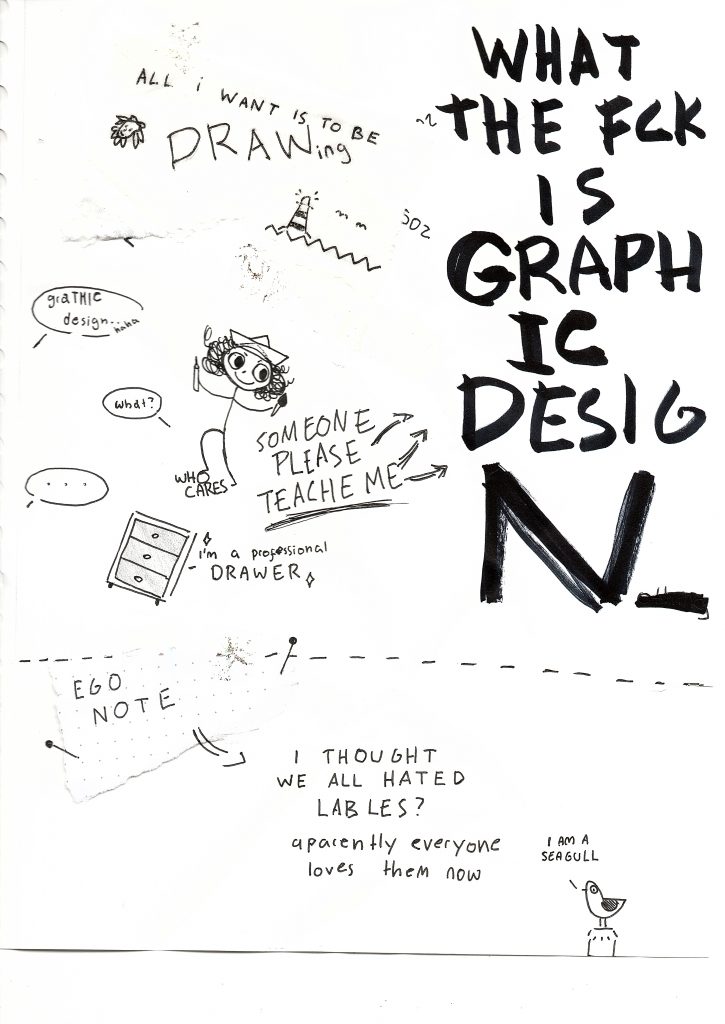 ALL i WANT IS TO BE
DRAWing
WHAT
THE FCK
IS
GRAPH
IC
DESIG
N_
graTHIC
design...
haha
what?
...
WHO
CARES
SOMEONE
PLEASE
TEACHE ME
I'm a professional
DRAWER
EGO
NOTE
I THOUGHT
WE ALL HATED
LABLES?
aparently everyone
loves them now
I AM A
SEAGULL